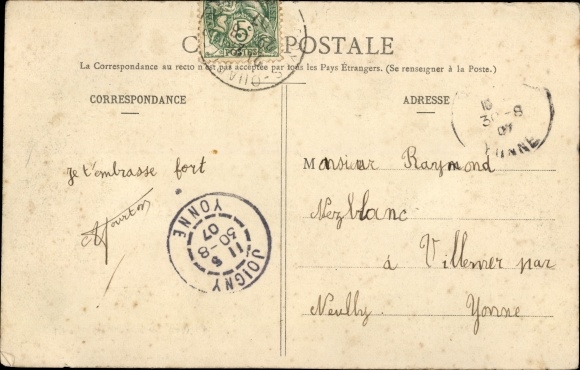 CARTE POSTALE
La Correspondance au recto n'est pas acceptée par tous les Pays Étrangers. (Se renseigner à la Poste.)
CORRESPONDANCE
je t'embrasse fort
JOIGNY
11 5
30-8
07
YONNE
5
POSTES
ADRESSE
30-8
07
YONNE
Monsieur Raymond
Nezblanc
à Villemer par
Neuilly Yonne